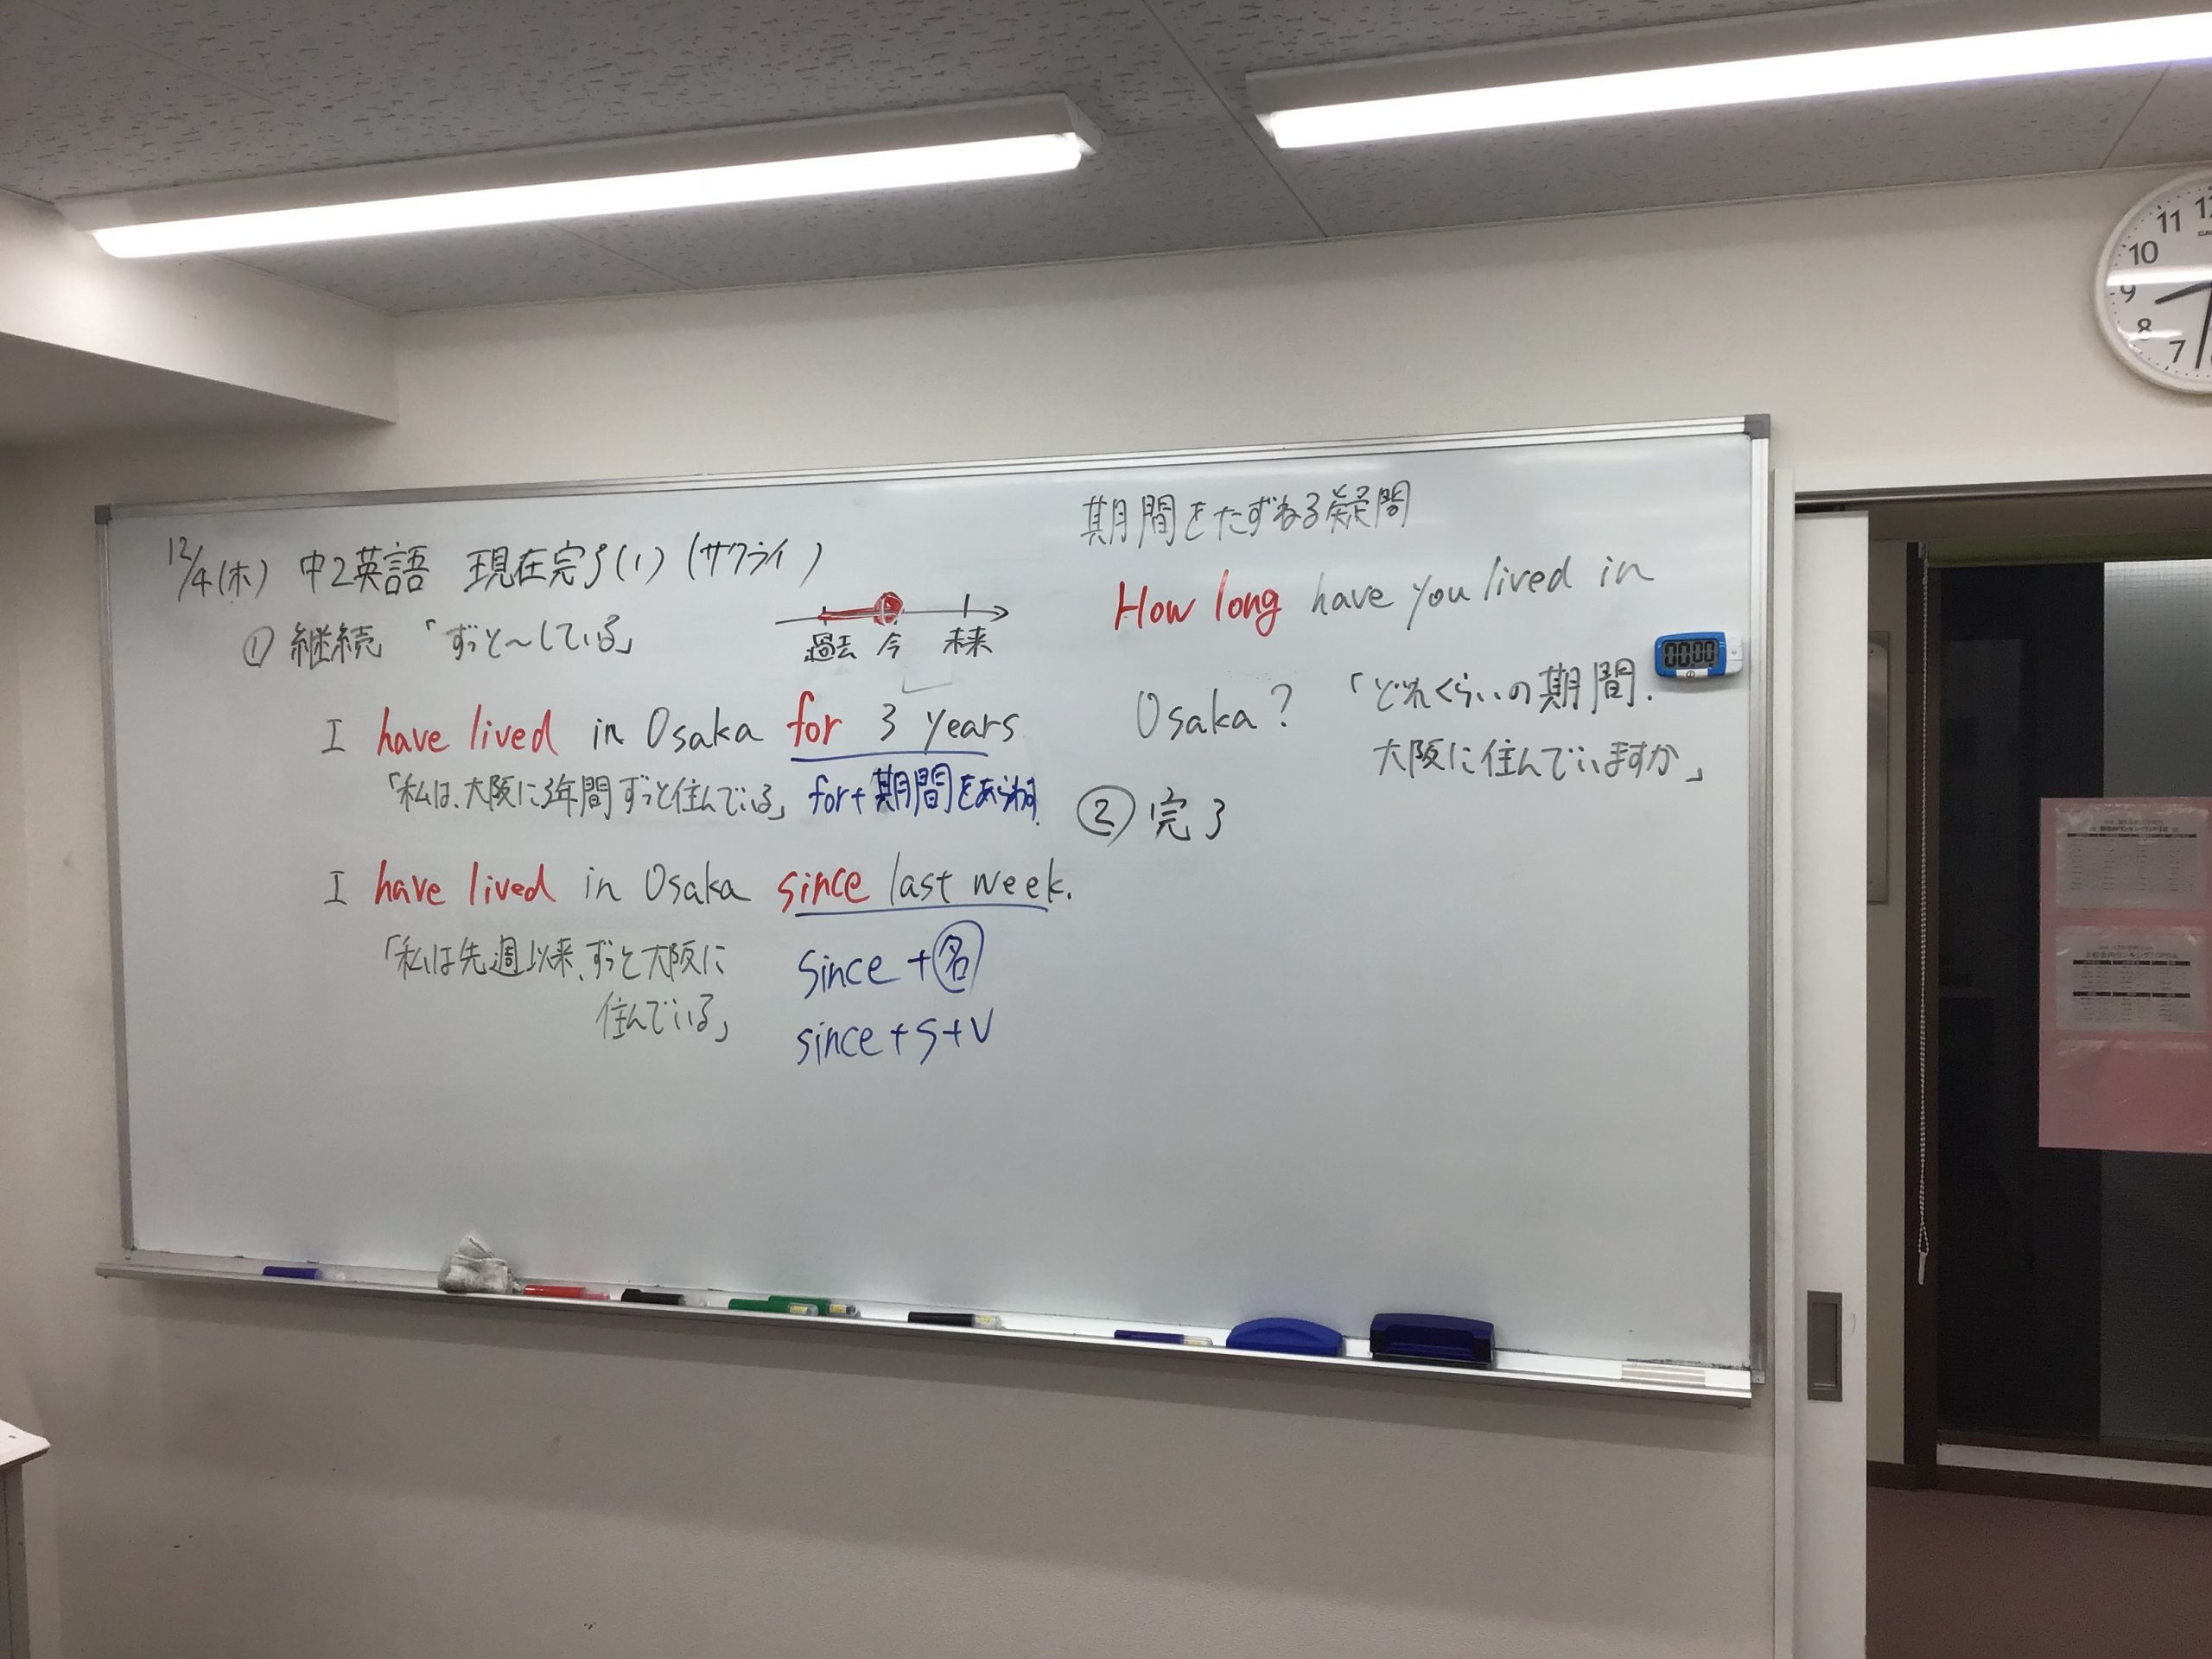 12/4(木) 中2英語 現在完了(1) (サクライ)
① 継続 「ずっと〜している」
過去 今 未来
I have lived in Osaka for 3 years
「私は、大阪に3年間ずっと住んでいる」 for+期間をあらわす
I have lived in Osaka since last week.
「私は先週以来、ずっと大阪に
住んでいる」
since+名
since+S+V
期間をたずねる疑問
How long have you lived in
Osaka? 「どれくらいの期間.
大阪に住んでいますか」
② 完了
00:00
11
10
9
8
7